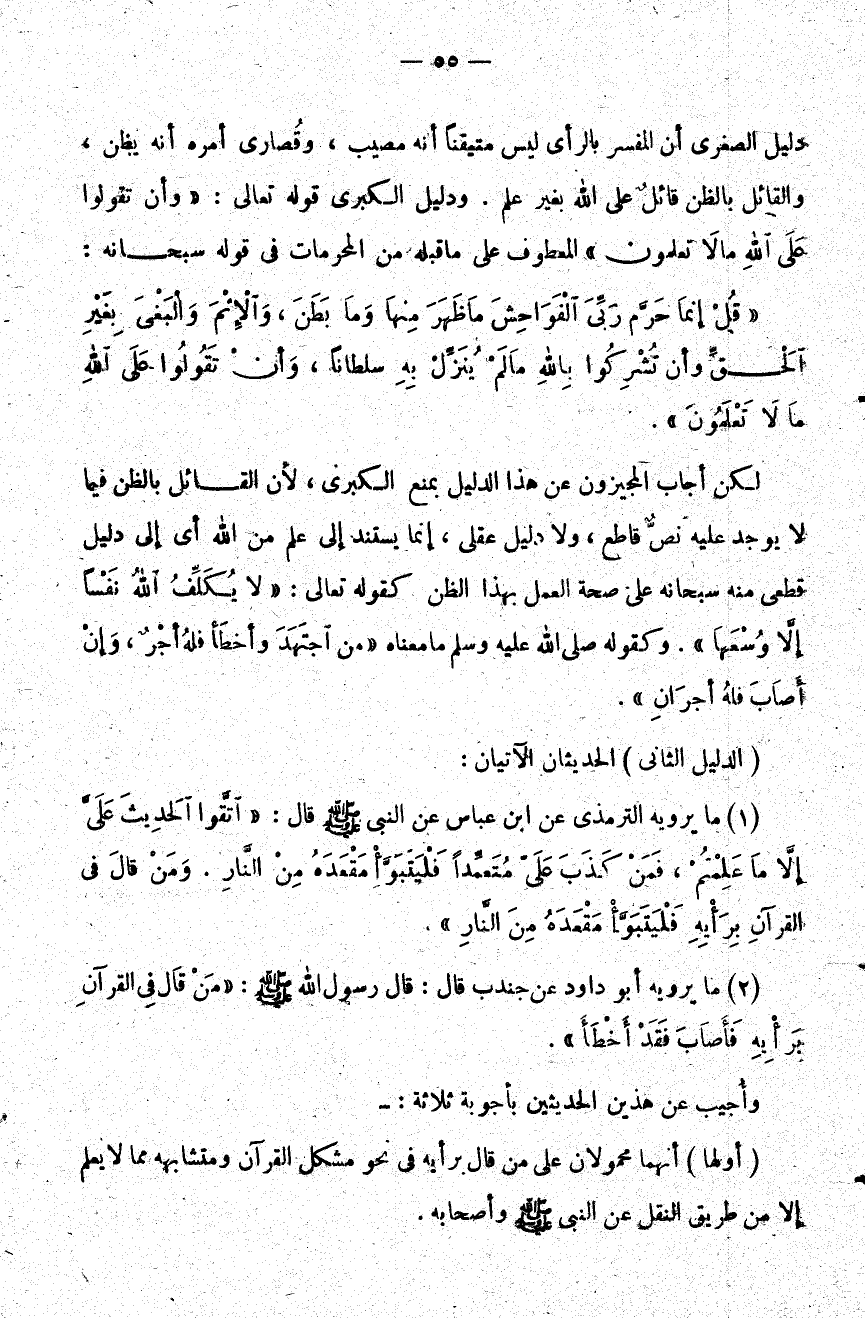 — ٥٥ —
دليل الصغرى أن المفسر بالرأى ليس متيقناً أنه مصيب ، وقُصارى أمره أنه يظن ،
والقائل بالظن قائلٌ على الله بغير علم . ودليل الكبرى قوله تعالى : « وأن تقولوا
عَلَى ٱللهِ مالَا تعلمون » المعطوف على ماقبله من المحرمات فى قوله سبحانه :
« قُلْ إنما حَرَّم رَبِّىَ ٱلْفَوَاحِشَ مَاظَهَرَ مِنْها وَما بَطَنَ ، وَٱلْإِثْمَ وَٱلْبَغْىَ بِغَيْرِ
ٱلْحَقِّ وأن تُشْرِكُوا بِاللهِ مالَمْ يُنَزِّلْ بِهِ سلطاناً ، وَأنْ تَقُولُوا عَلَى ٱللهِ
ما لَا تَعْلَمُونَ » .
لكن أجاب المجيزون عن هذا الدليل بمنع الكبرى ، لأن القائل بالظن فيما
لا يوجد عليه نصٌّ قاطع ، ولا دليل عقلى ، إنما يستند إلى علم من الله أى إلى دليل
قطعى منه سبحانه على صحة العمل بهذا الظن كقوله تعالى : « لا يُكَلِّفُ ٱللهُ نَفْساً
إلَّا وُسْعَها » . وكقوله صلى الله عليه وسلم مامعناه « من ٱجتَهَدَ وأخطَأ فلهُ أجْرٌ ، وَإنْ
أَصابَ فلهُ أجرَانِ » .
( الدليل الثانى ) الحديثان الآتيان :
(١) ما يرويه الترمذى عن ابن عباس عن النبى ﷺ قال : « ٱتَّقُوا ٱلحَدِيثَ عَلَىَّ
إلَّا ما عَلِمْتُمْ ، فَمَنْ كَذَبَ عَلَىَّ مُتَعمِّداً فَلْيَتَبَوَّأْ مَقْعَدَهُ مِنْ النَّارِ . وَمَنْ قالَ فى
القرآنِ بِرَأْيِهِ فَلْيَتَبَوَّأْ مَقْعَدَهُ مِنَ النَّارِ » .
(٢) ما يرويه أبو داود عن جندب قال : قال رسول الله ﷺ : « مَنْ قَال فِى القرآنِ
بِرَأْيِهِ فَأَصابَ فَقَدْ أَخْطَأَ » .
وأُجيب عن هذين الحديثين بأجوبة ثلاثة : ــ
( أولها ) أنهما محمولان على من قال برأيه فى نحو مشكل القرآن ومتشابهه مما لا يعلم
إلا من طريق النقل عن النبى ﷺ وأصحابه .